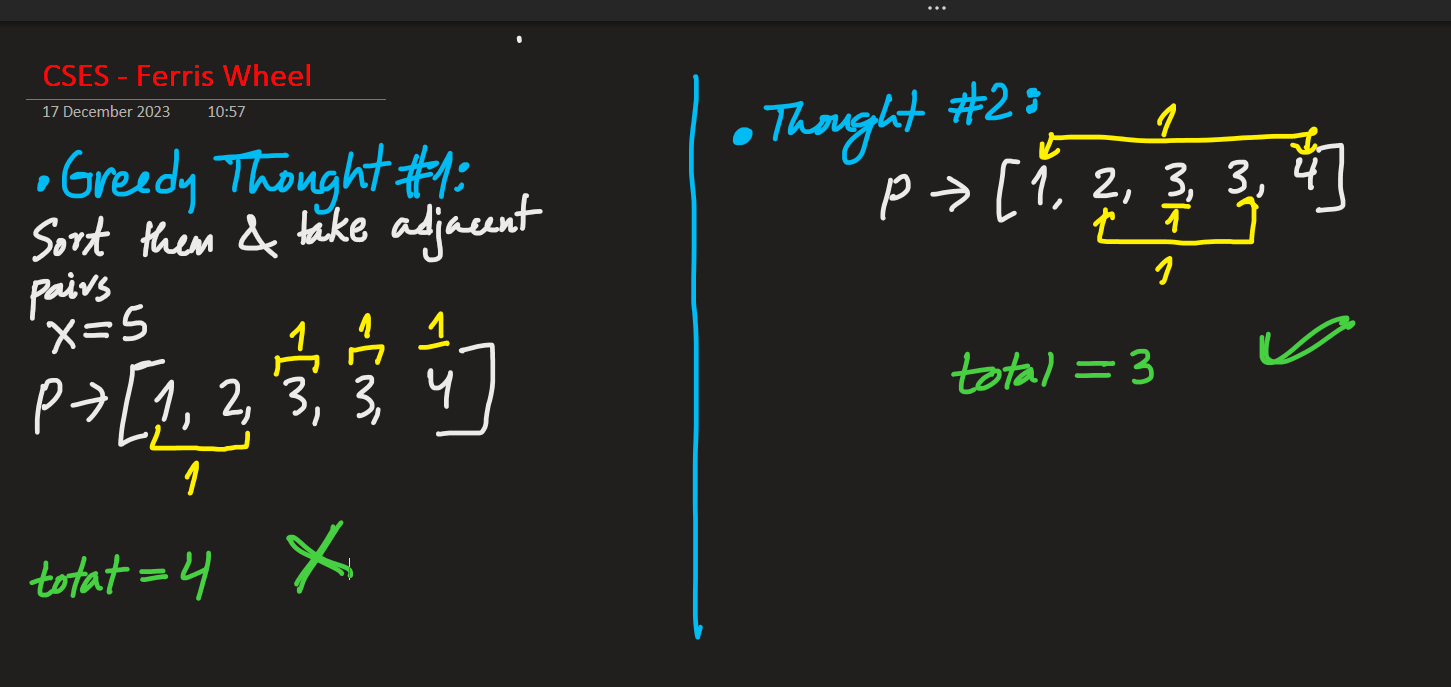 CSES - Ferris Wheel
17 December 2023 10:57
• Greedy Thought #1:
Sort them & take adjacent
pairs
x = 5
1 1 1
P → [1, 2, 3, 3, 4]
1
total = 4
• Thought #2:
1
P → [1, 2, 3, 3, 4]
1
1
total = 3